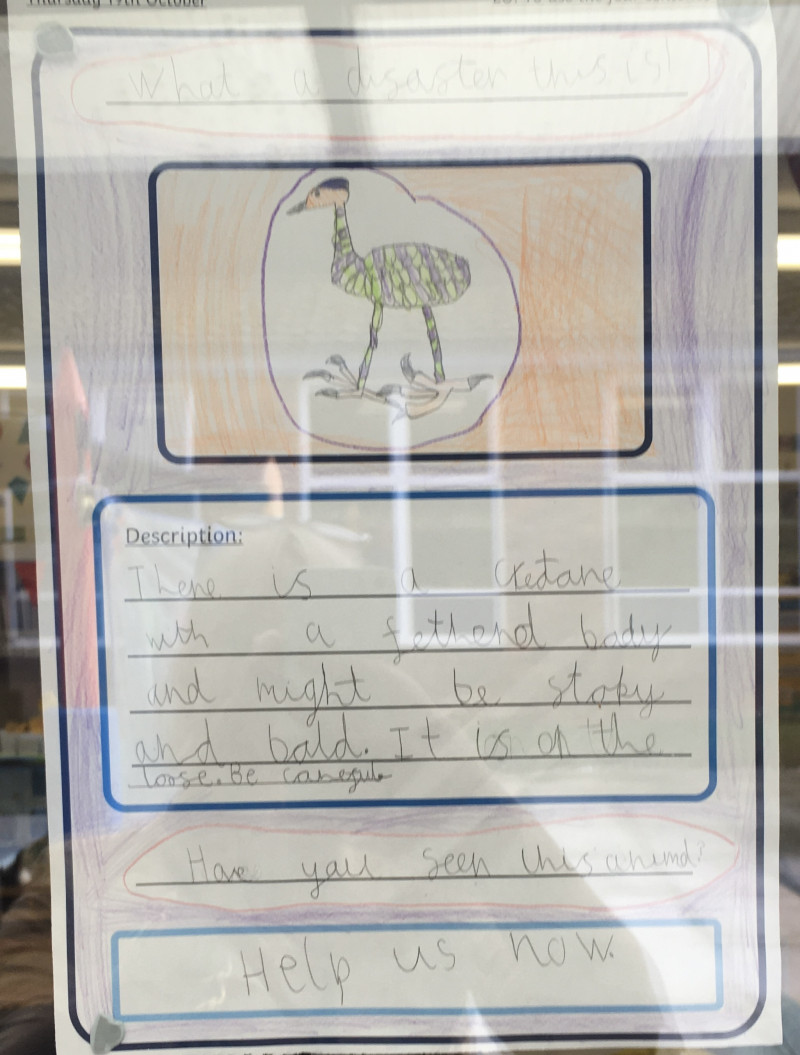 Thursday 19th October
What a disaster this is!
Description:
There is a cretane
with a fethend body
and might be stopy
and bald. It is on the
loose. Be careful
Have you seen this animal?
Help us now.